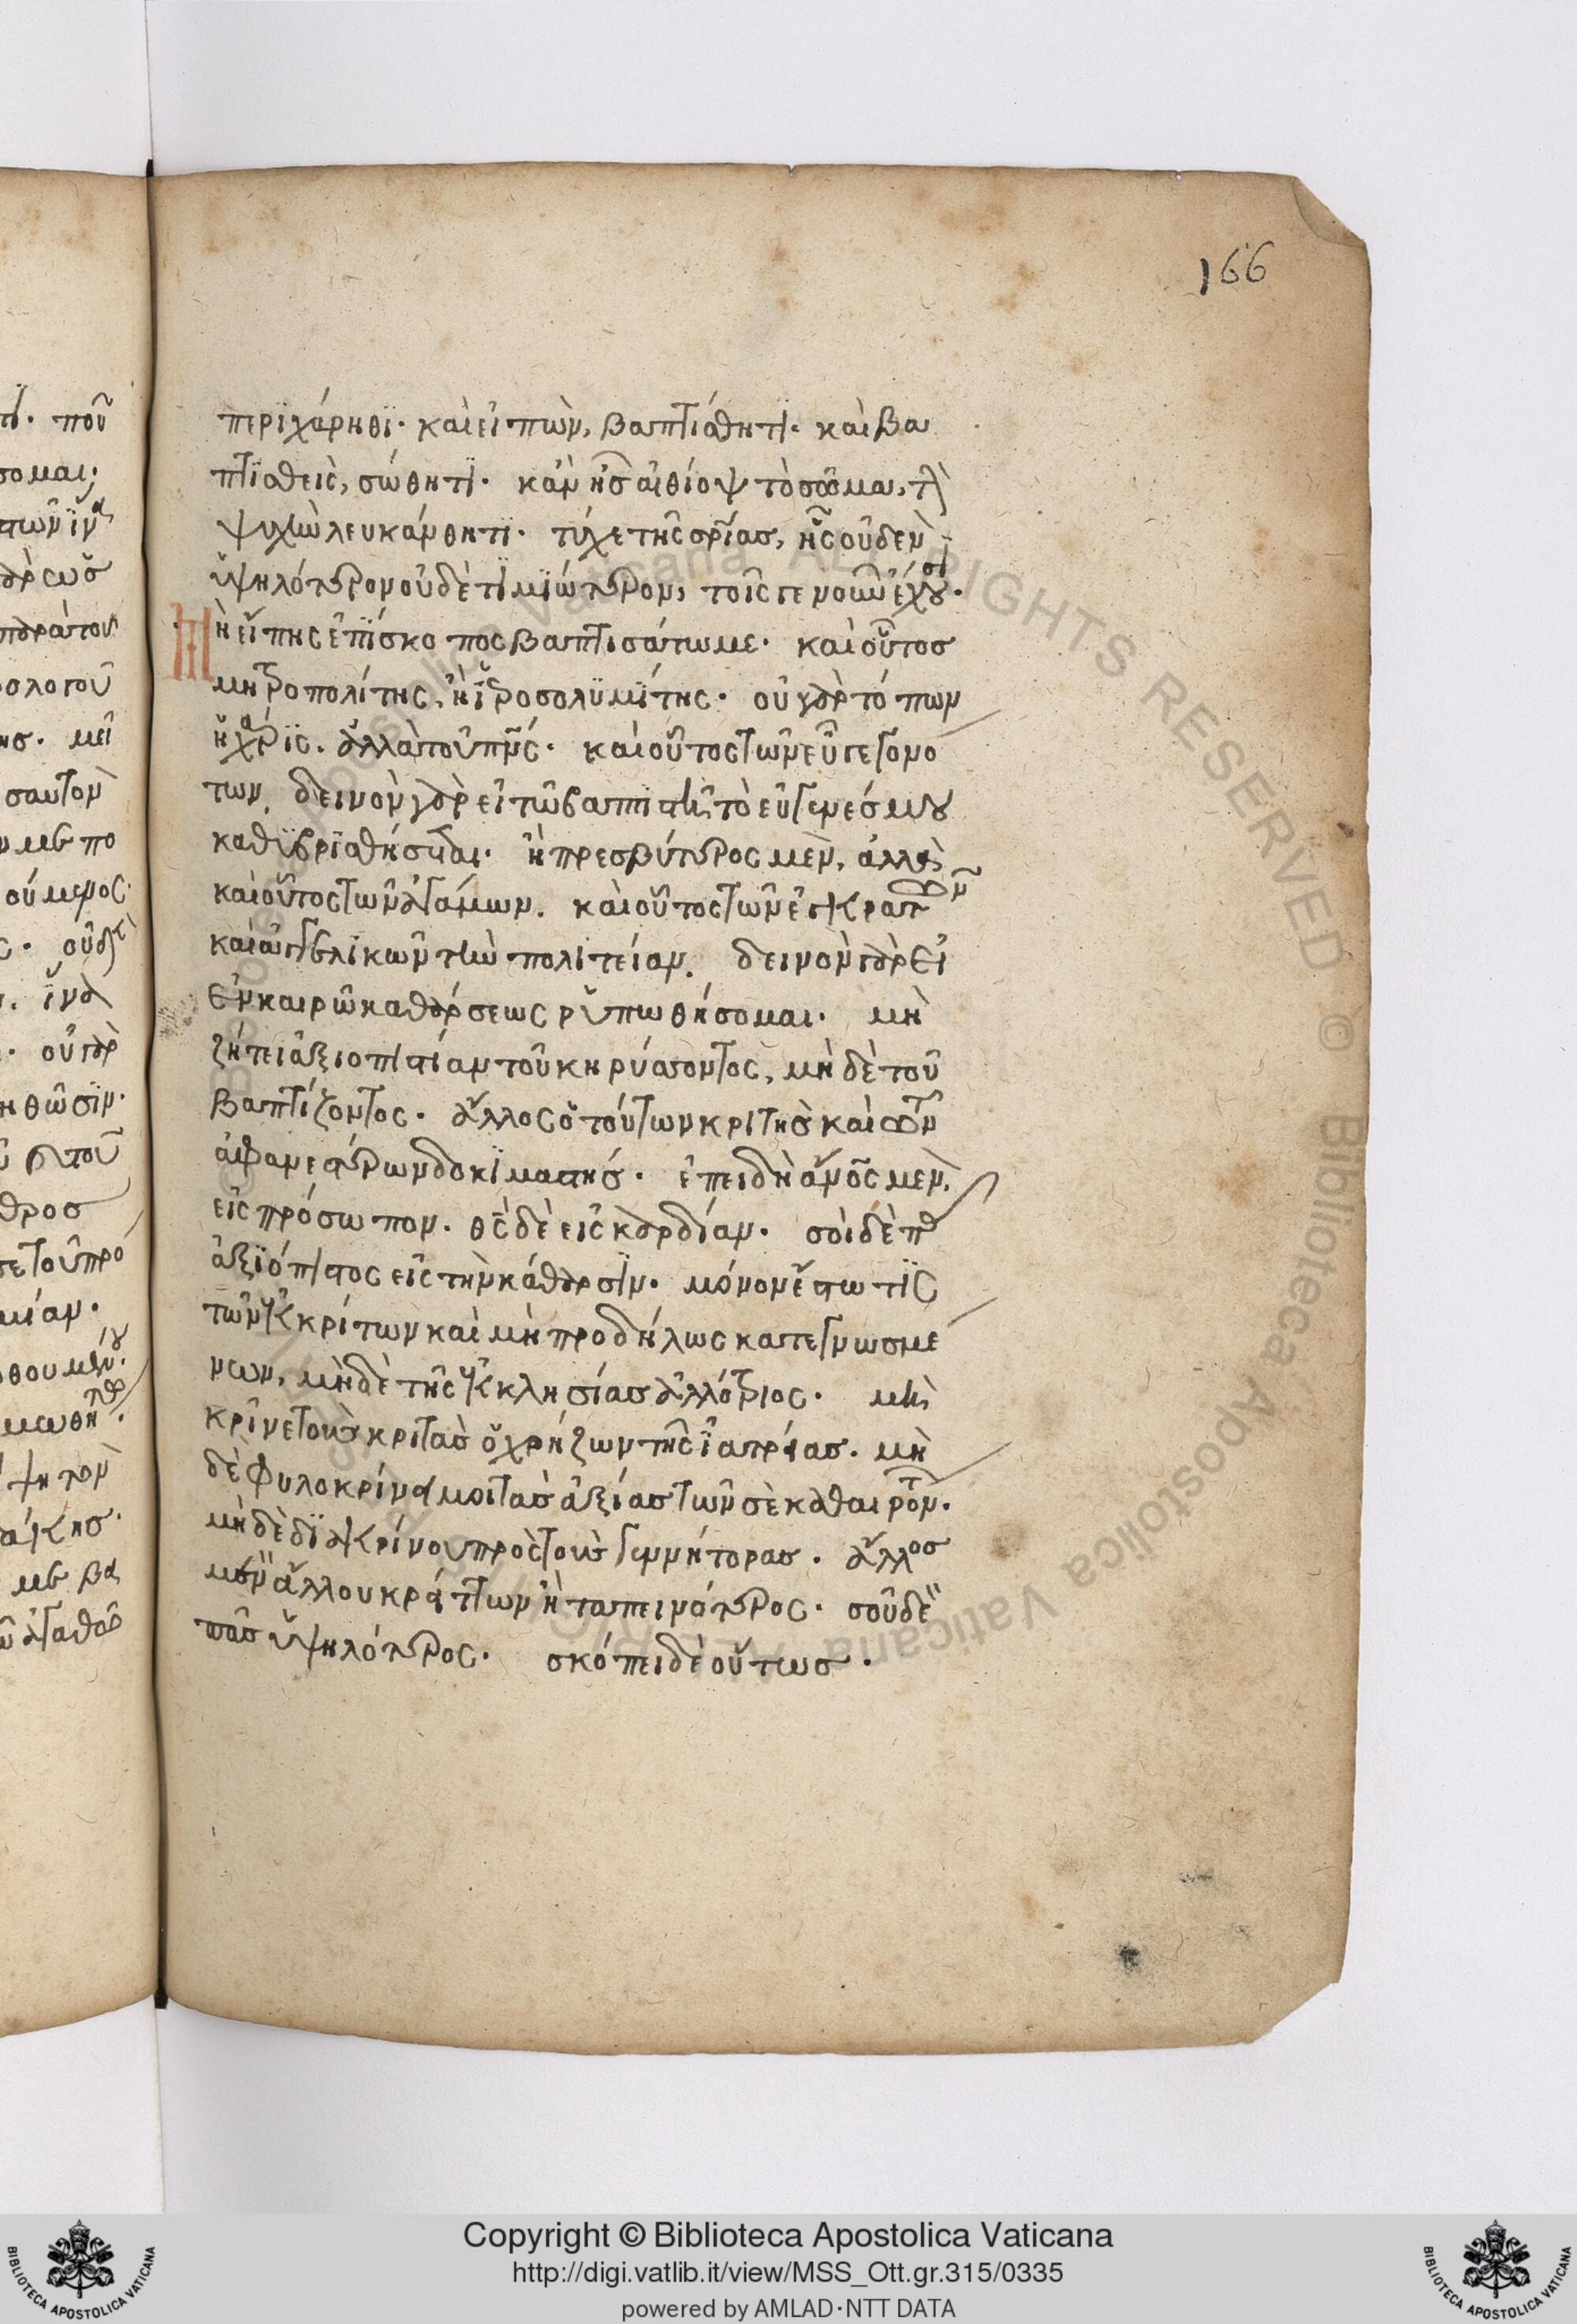 166
περϊχάρηθϊ· καὶ εἰπὼν, βαπτίσθητϊ· καὶ βα
πτϊσθεὶς, σώθητϊ· κἂν ᾖς αἰθίοψ τὸ σῶμα, τὴν
ψυχὴν λευκάνθητϊ· τύχε τῆς σρϊας, ἧς οὐδὲν
ὑψηλότερον οὐδὲ τϊμϊώτερον, τοῖς γε νοῦν ἔχουσι·
Μὴ εἴπης ἐπΐσκοπος βαπτισάτω με· καὶ οὗτος
μητροπολίτης, ἢ ἱεροσολϋμΐτης· οὐ γὰρ τόπων
ἡ χάρϊς. ἀλλὰ τοῦ πνς· καὶ οὗτος τῶν εὖ γεγονό
των. δεινὸν γὰρ εἰ τῷ βαπτιστῇ τὸ εὐγενές μου
καθϋβρϊσθήσεται· ἢ πρεσβύτερος μὲν, ἀλλὰ
καὶ οὗτος τῶν ἀγάμων. καὶ οὗτος τῶν ἐγκρατῶν
καὶ ἀγγελϊκῶν τὴν πολιτείαν. δεινὸν γὰρ εἰ
ἐν καιρῷ καθάρσεως ρϋπωθήσομαι· μὴ
ζήτει ἀξιοπιστίαν τοῦ κηρύσσοντος, μὴ δὲ τοῦ
βαπτίζοντος· ἄλλος ὁ τούτων κριτὴς καὶ τῶν
ἀφανεστέρων δοκϊμαστής· ἐπειδὴ ἄνος μὲν
εἰς πρόσωπον. θς δὲ εἰς καρδίαν· σοὶ δὲ πᾶς
ἀξϊόπιστος εἰς τὴν κάθαρσϊν· μόνον ἔστω τϊς
τῶν ἐγκρίτων καὶ μὴ προδήλως κατεγνωσμέ
νων, μὴ δὲ τῆς ἐκκλησίας ἀλλότριος· μὴ
κρῖνε τοὺς κριτὰς ὁ χρήζων τῆς ἰατρείας. μὴ
δὲ φυλοκρίνει μοι τὰς ἀξίας τῶν σὲ καθαιρόντων·
μὴ δὲ δϊακρίνου πρὸς τοὺς γεννήτορας. ἄλλος
μὲν ἄλλου κρείττων ἢ ταπεινότερος· σοῦ δὲ
πᾶς ὑψηλότερος· σκόπει δὲ οὕτως·
Copyright © Biblioteca Apostolica Vaticana
http://digi.vatlib.it/view/MSS_Ott.gr.315/0335
powered by AMLAD·NTT DATA